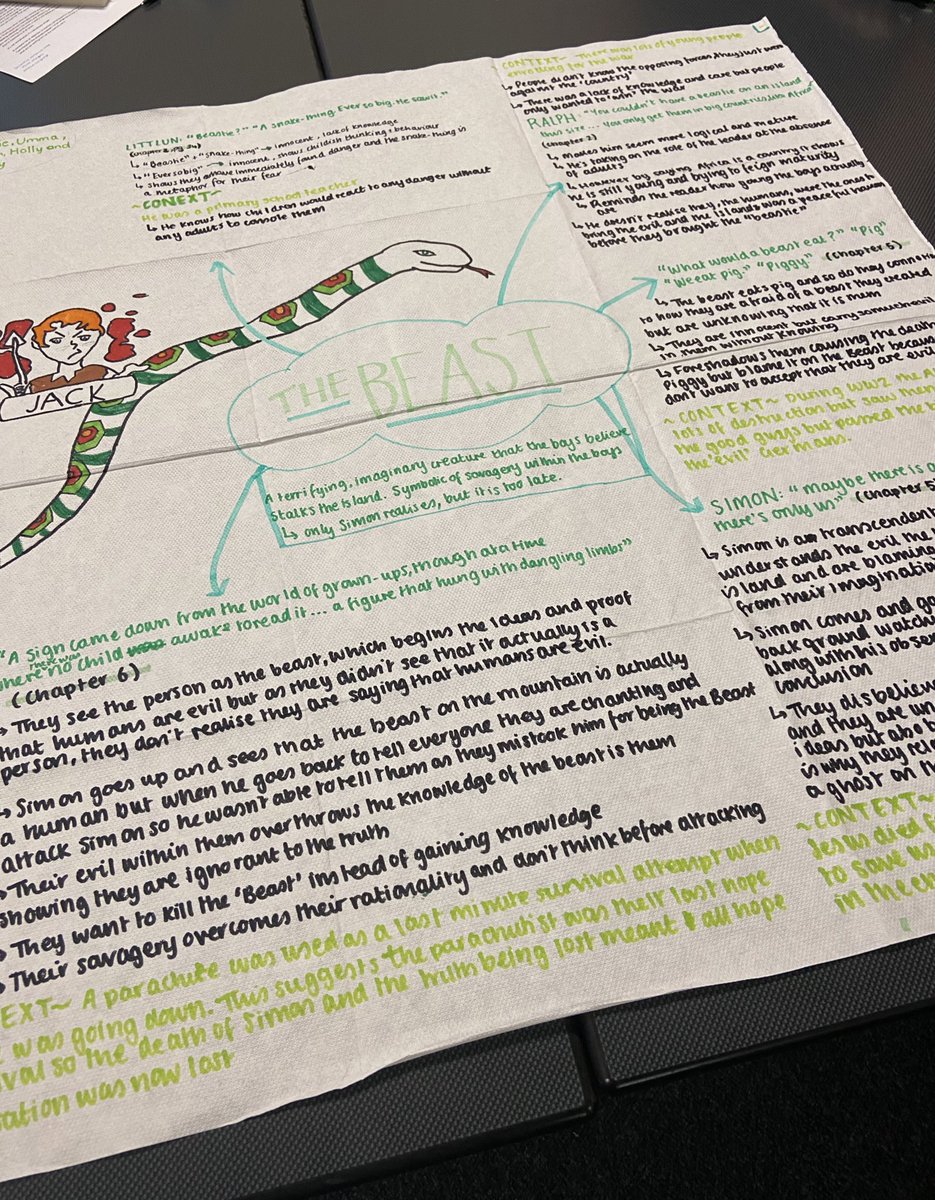 Umma,
Holly and
LITTLUN: "Beastie?" "A snake-thing. Ever so big. He saw it."
(chapter 2
↳ "Beastie" + "snake-thing" → innocent, lack of knowledge
↳ "Ever so big" → innocent, shows childish thinking + behaviour
↳ shows they have immediately found danger and the snake-thing is
a metaphor for their fear
~CONEXT~
He was a primary school teacher
↳ He knows how children would react to any danger without
any adults to console them
JACK
THE BEAST
A terrifying, imaginary creature that the boys believe
stalks the island. Symbolic of savagery within the boys
↳ only Simon realises, but it is too late.
CONTEXT~ There was lots of young people
enrolling for the war
↳ People didn't know the opposing forces, they just were
against the "country"
↳ There was a lack of knowledge and care but people
only wanted to "win" the war
RALPH: "You couldn't have a beastie on an island
this size... You only get them in big countries, like Africa"
(chapter 2)
↳ Makes him seem more logical and mature
↳ He's taking on the role of the leader at the absence
of adults
↳ However by saying Africa is a country it shows
he is still young and trying to feign maturity
↳ Reminds the reader how young the boys actually
are
↳ He doesn't realise they, the humans, were the ones to
bring the evil and the islands was a peaceful haven
before they brought the "beastie"
"What would a beast eat?" "Pig"
"We eat pig." "Piggy" (Chapter 5)
↳ The beast eats pig and so do they
to how they are afraid of a beast they created
but are unknowing that it is them
↳ They are innocent but carry some
in them without knowing
↳ Foreshadows them causing the death
Piggy but blame it on the Beast because
don't want to accept that they are evil
~CONTEXT~ During WW2 the
lots of destruction but saw them
the good guys but passed the
the 'evil' Germans.
SIMON: "maybe there is a
there's only us" (Chapter 5)
↳ Simon is transcendent
understands the evil the
island and are blaming
from their imagination
↳ Simon comes and go
background watchi
along with his obser
conclusion
↳ They disbelieve
and they are un
ideas but abo
is why they rel
a ghost on
~CONTEXT~
Jesus died f
to save us
in the
"A sign came down from the world of grown-ups, though at a time
there was
where no child awake to read it... a figure that hung with dangling limbs"
(Chapter 6)
↳ They see the person as the beast, which begins the ideas and proof
that humans are evil but as they didn't see that it actually is a
person, they don't realise they are saying that humans are evil.
↳ Simon goes up and sees that the beast on the mountain is actually
a human but when he goes back to tell everyone they are chanting and
attack Simon so he wasn't able to tell them as they mistook him for being the Beast
↳ Their evil within them overthrows the knowledge of the beast is them
showing they are ignorant to the truth
↳ They want to kill the 'Beast' instead of gaining knowledge
↳ Their savagery overcomes their rationality and don't think before attacking
EXT~ A parachute was used as a last minute survival attempt when
was going down. This suggests the parachutist was their last hope
ival so the death of Simon and the truth being lost meant all hope
ation was now lost